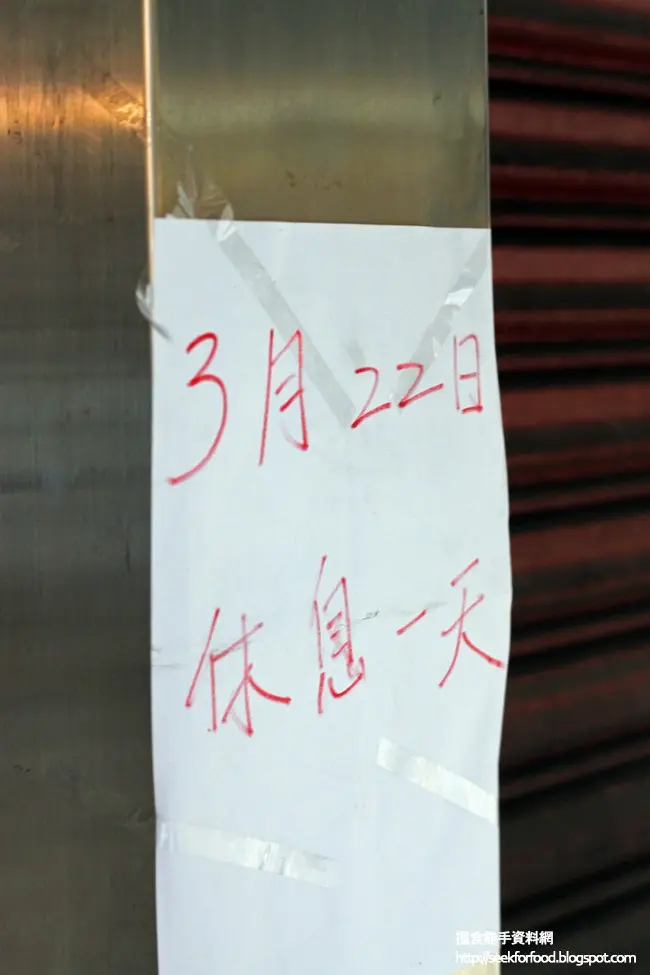 3月22日
休息一天
搵食能手資料網
http://seekforfood.blogspot.com